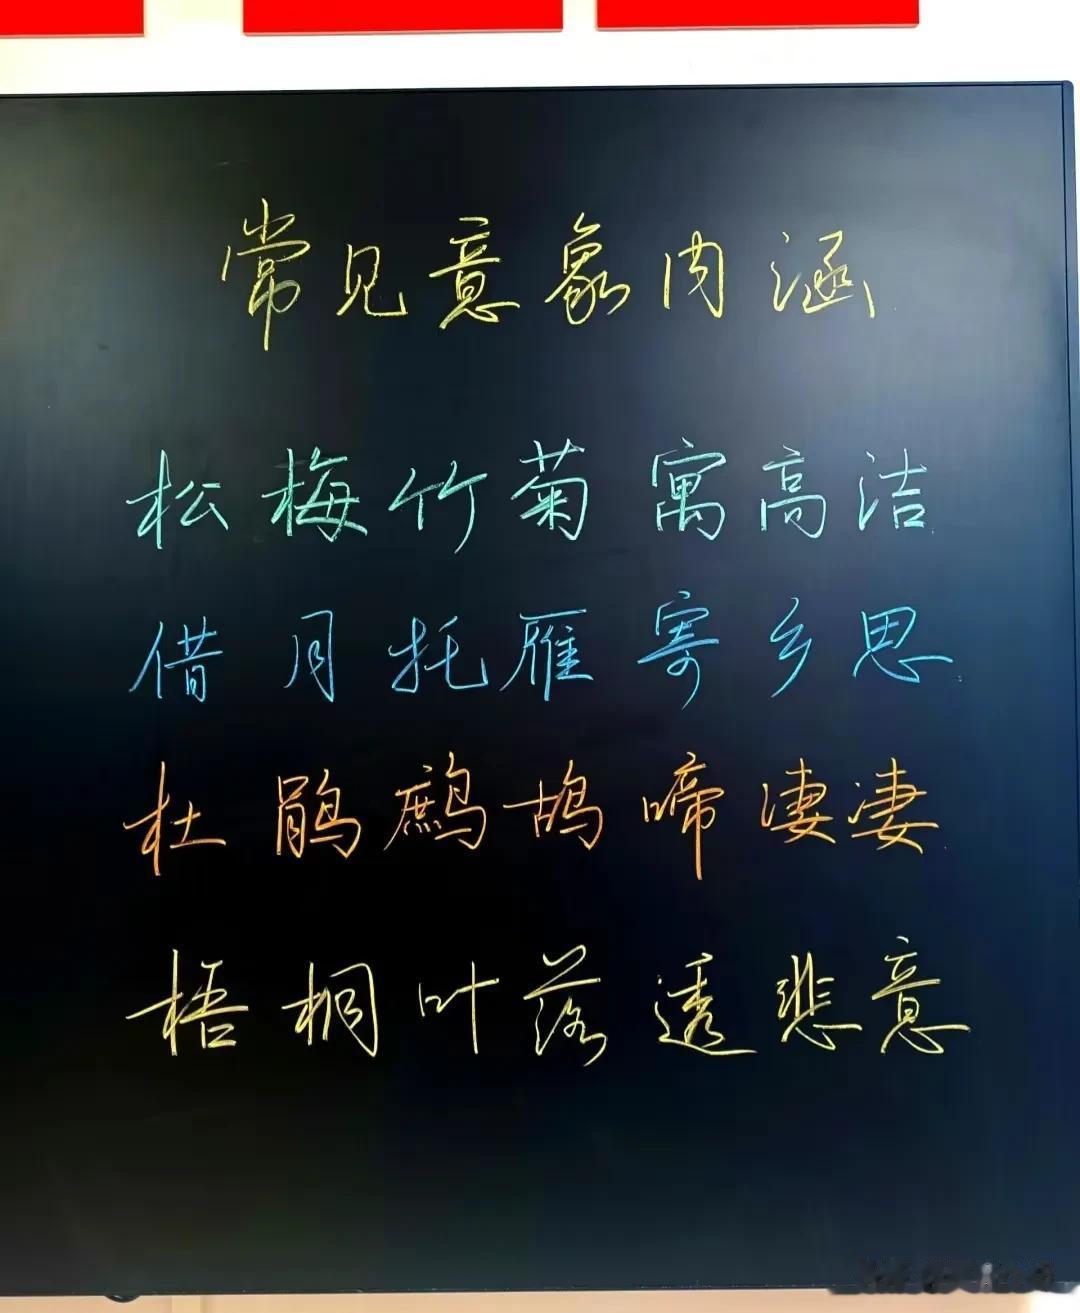 常见意象内涵
松梅竹菊寓高洁
借月托雁寄乡思
杜鹃鹧鸪啼凄凄
梧桐叶落透悲意